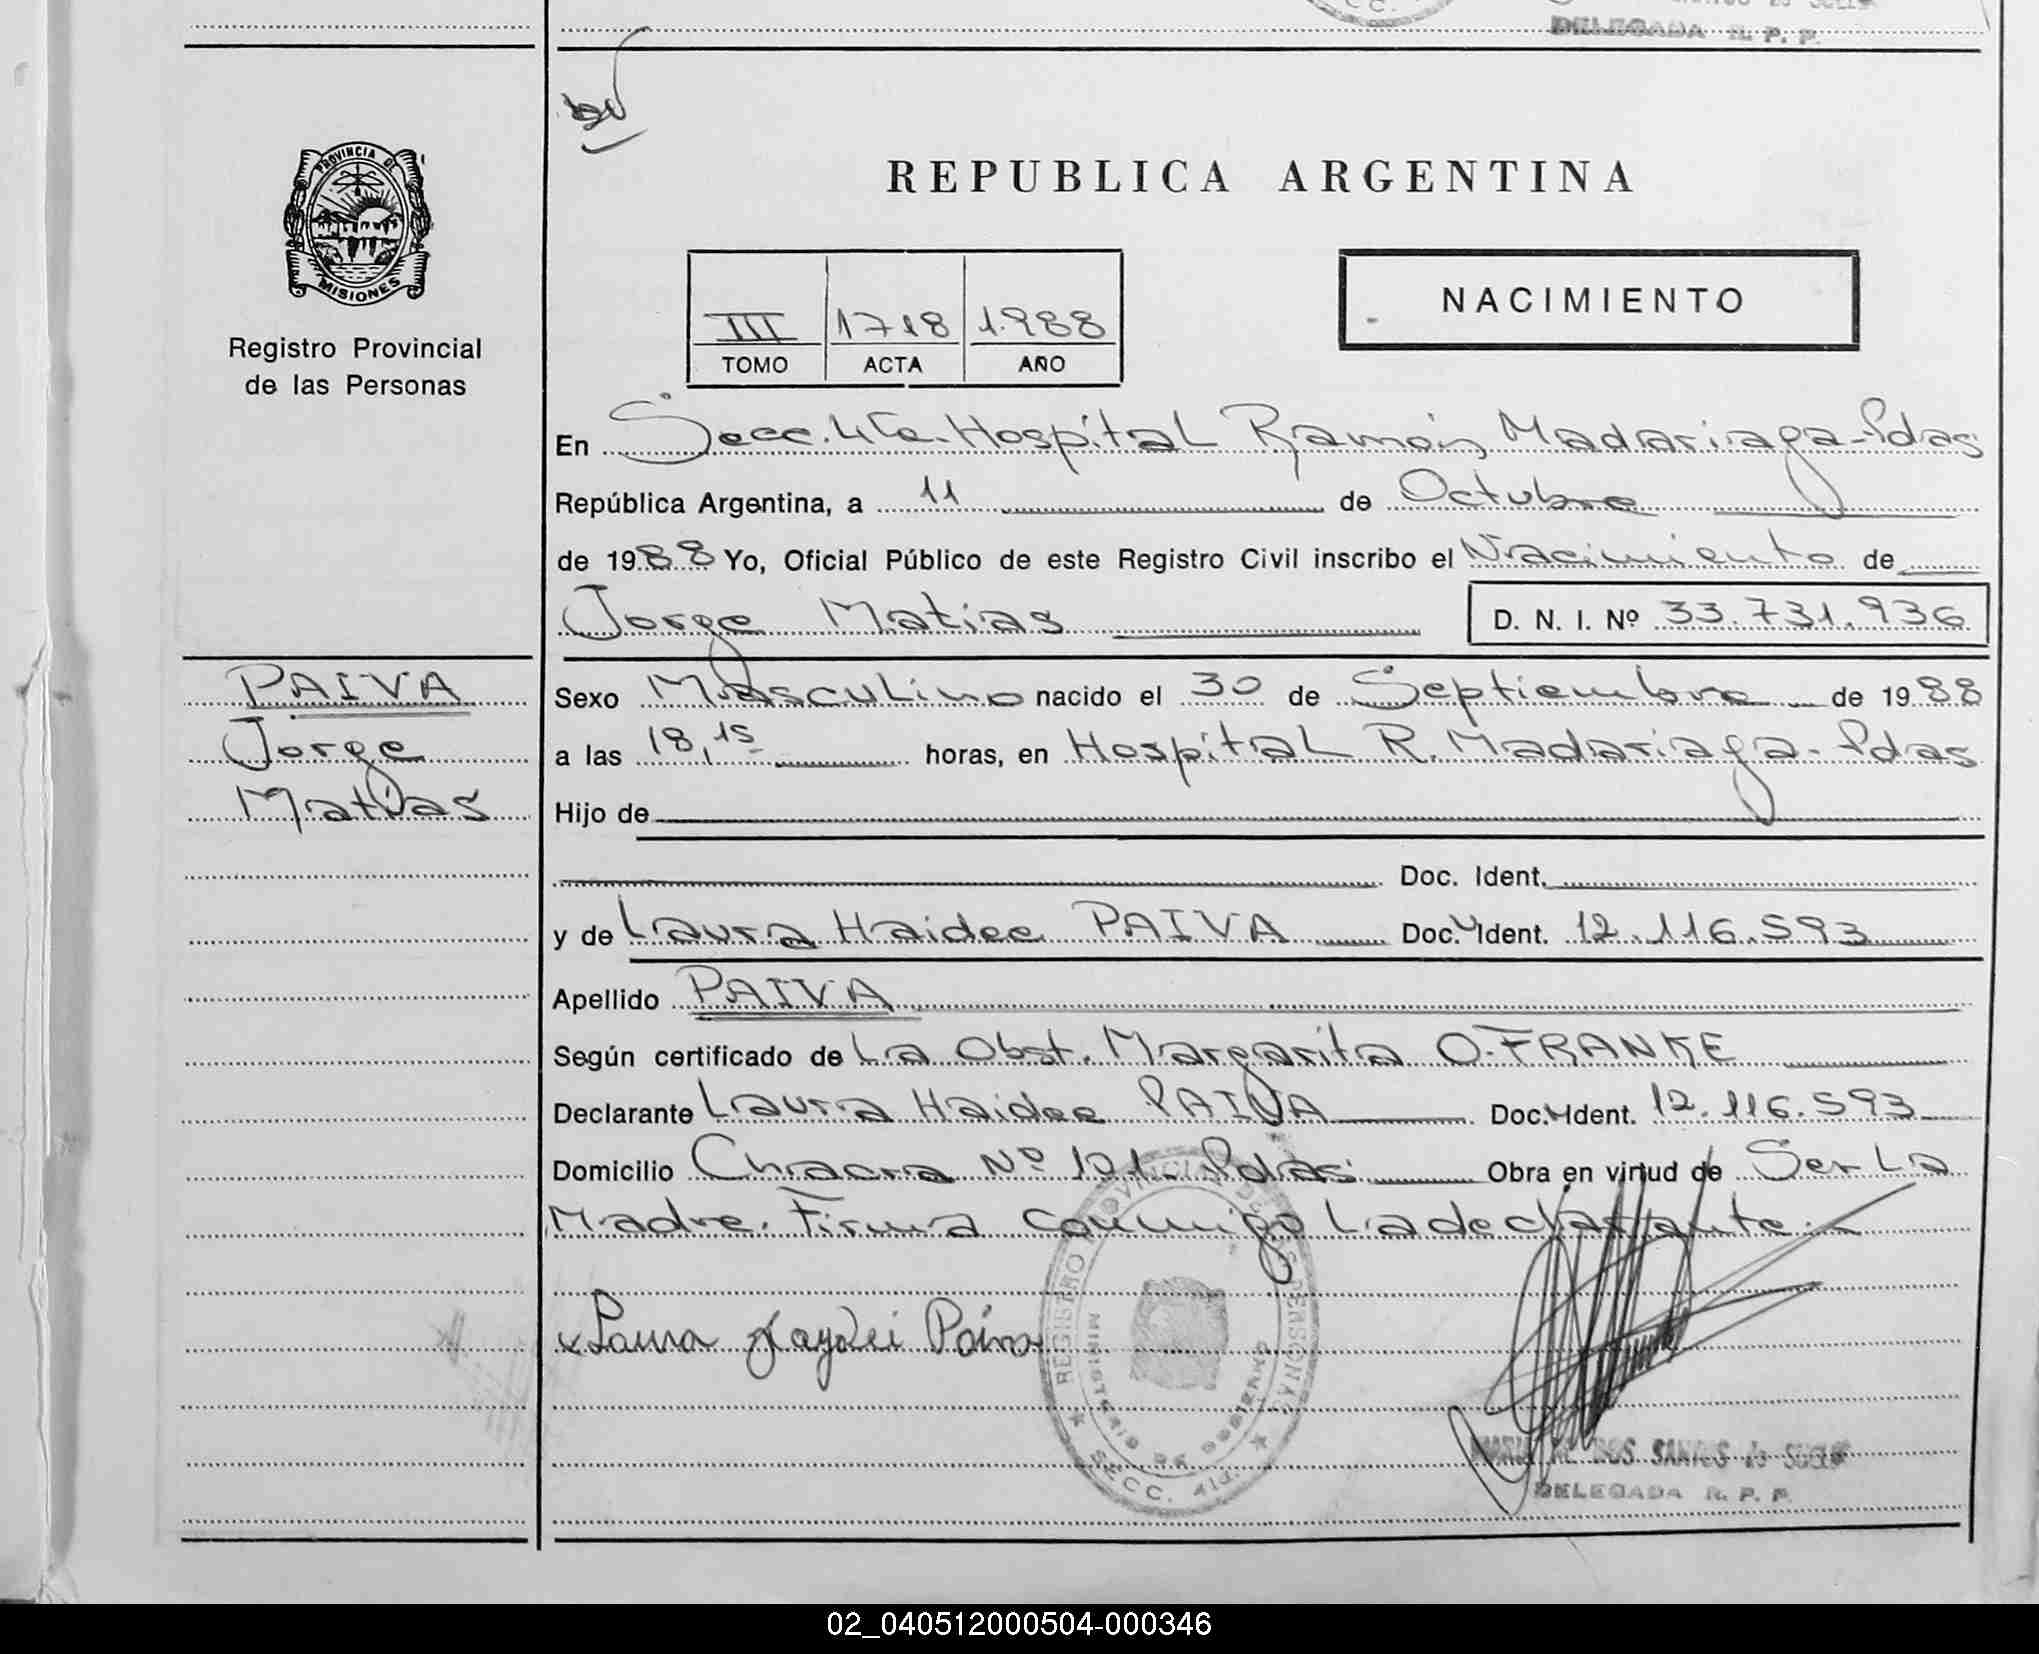 DELEGADA R. P. P.
PROVINCIA DE
MISIONES
Registro Provincial
de las Personas
REPUBLICA ARGENTINA
III 1718 1.988
TOMO ACTA AÑO
NACIMIENTO
En Secc. 4ta. Hospital Ramón Madariaga-Pdas
República Argentina, a 11 de Octubre
de 1988 Yo, Oficial Público de este Registro Civil inscribo el Nacimiento de
Jorge Matias D. N. I. Nº 33.731.936
PAIVA
Jorge
Matias
Sexo Masculino nacido el 30 de Septiembre de 1988
a las 18,15 horas, en Hospital R. Madariaga-Pdas
Hijo de
Doc. Ident.
y de Laura Haidee PAIVA Doc. Ident. 12.116.593
Apellido PAIVA
Según certificado de La Obst. Margarita O. FRANKE
Declarante Laura Haidee PAIVA Doc. Ident. 12.116.593
Domicilio Chacra Nº 121- Pdas Obra en virtud de Ser La
Madre. Firma conmigo La declarante.-
x Laura Haydei Paiva
REGISTRO PROVINCIAL DE LAS PERSONAS
MINISTERIO DE GOBIERNO
SECC. 4ta.
DOS SANTOS de
DELEGADA R. P. P.
02_040512000504-000346